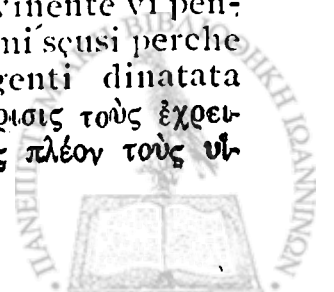 vinente vi pen-
mi scusi perche
genti dinatata
ρισις τοὺς ἐχρει-
ς πλέον τοὺς υἱ-
ΠΑΝΕΠΙΣΤΗΜΙΑΚΗ ΒΙΒΛΙΟΘΗΚΗ ΙΩΑΝΝΙΝΩΝ